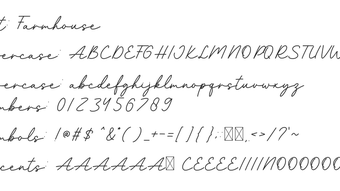 t Farmhouse
ercase: ABCDEFGHIJKLMNOPQRSTUVW
ercase: abcdefghijklmnopqrstuvwxyz
mbers: 0123456789
mbols: !@#$ ^&*( )_+-=[ ]{ };:,.<>/?'~
cents: AAAAAA CEEEEIIIINOOOOO